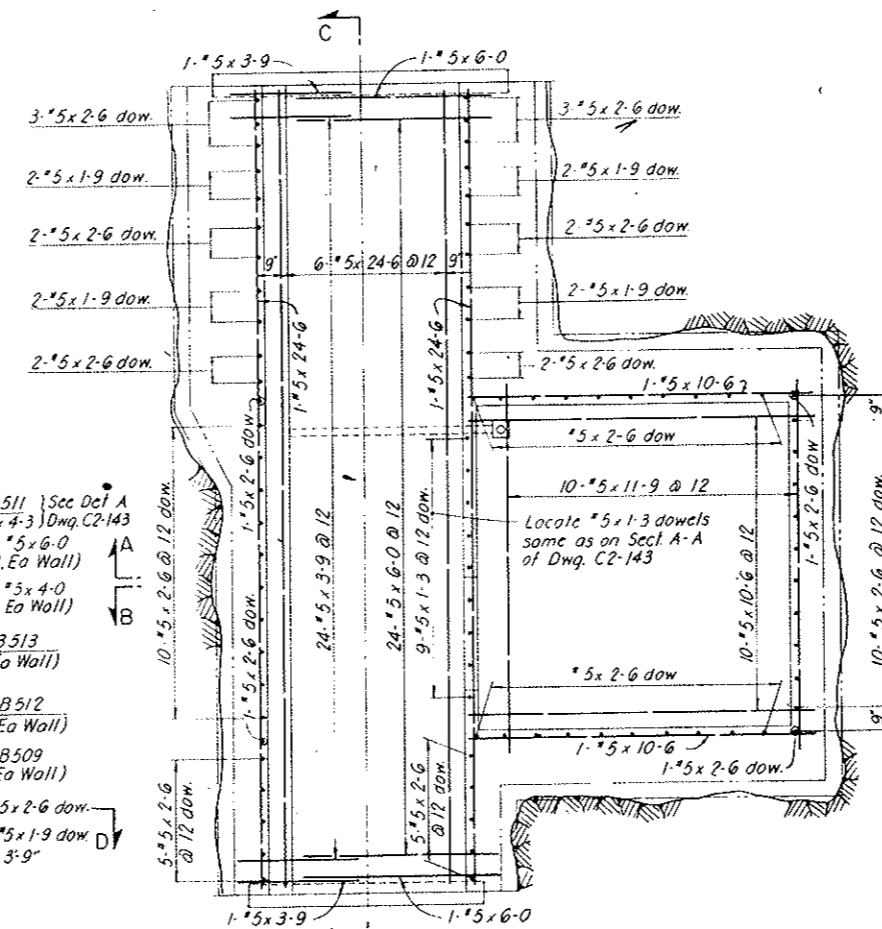 C
1-#5x3-9
1-#5x6-0
3-#5x2-6 dow.
2-#5x1-9 dow.
2-#5x2-6 dow.
2-#5x1-9 dow.
2-#5x2-6 dow.
3-#5x2-6 dow.
2-#5x1-9 dow.
2-#5x2-6 dow.
2-#5x1-9 dow.
2-#5x2-6 dow.
9"
6-#5x24-6 @ 12
9"
1-#5x24-6
1-#5x24-6
1-#5x10-6
#5x2-6 dow
10-#5x11-9 @ 12
Locate #5x1-3 dowels
same as on Sect. A-A
of Dwg. C2-143
9"
1-#5x2-6 dow
10-#5x2-6 @ 12 dow.
9"
10-#5x10-6 @ 12
#5x2-6 dow
1-#5x10-6
1-#5x2-6 dow.
1-#5x2-6 dow
10-#5x2-6 @ 12 dow.
1-#5x2-6 dow.
24-#5x3-9 @ 12
24-#5x6-0 @ 12
9-#5x1-3 @ 12 dow.
5-#5x2-6
@ 12 dow.
5-#5x2-6
@ 12 dow.
511 } See Det A
x4-3 } Dwg. C2-143
#5x6-0
Ea Wall)
#5x4-0
Ea Wall)
A
B
B513
a Wall)
B512
Ea Wall)
B509
Ea Wall)
5x2-6 dow.
#5x1-9 dow.
3'-9"
D
1-#5x3-9
1-#5x6-0